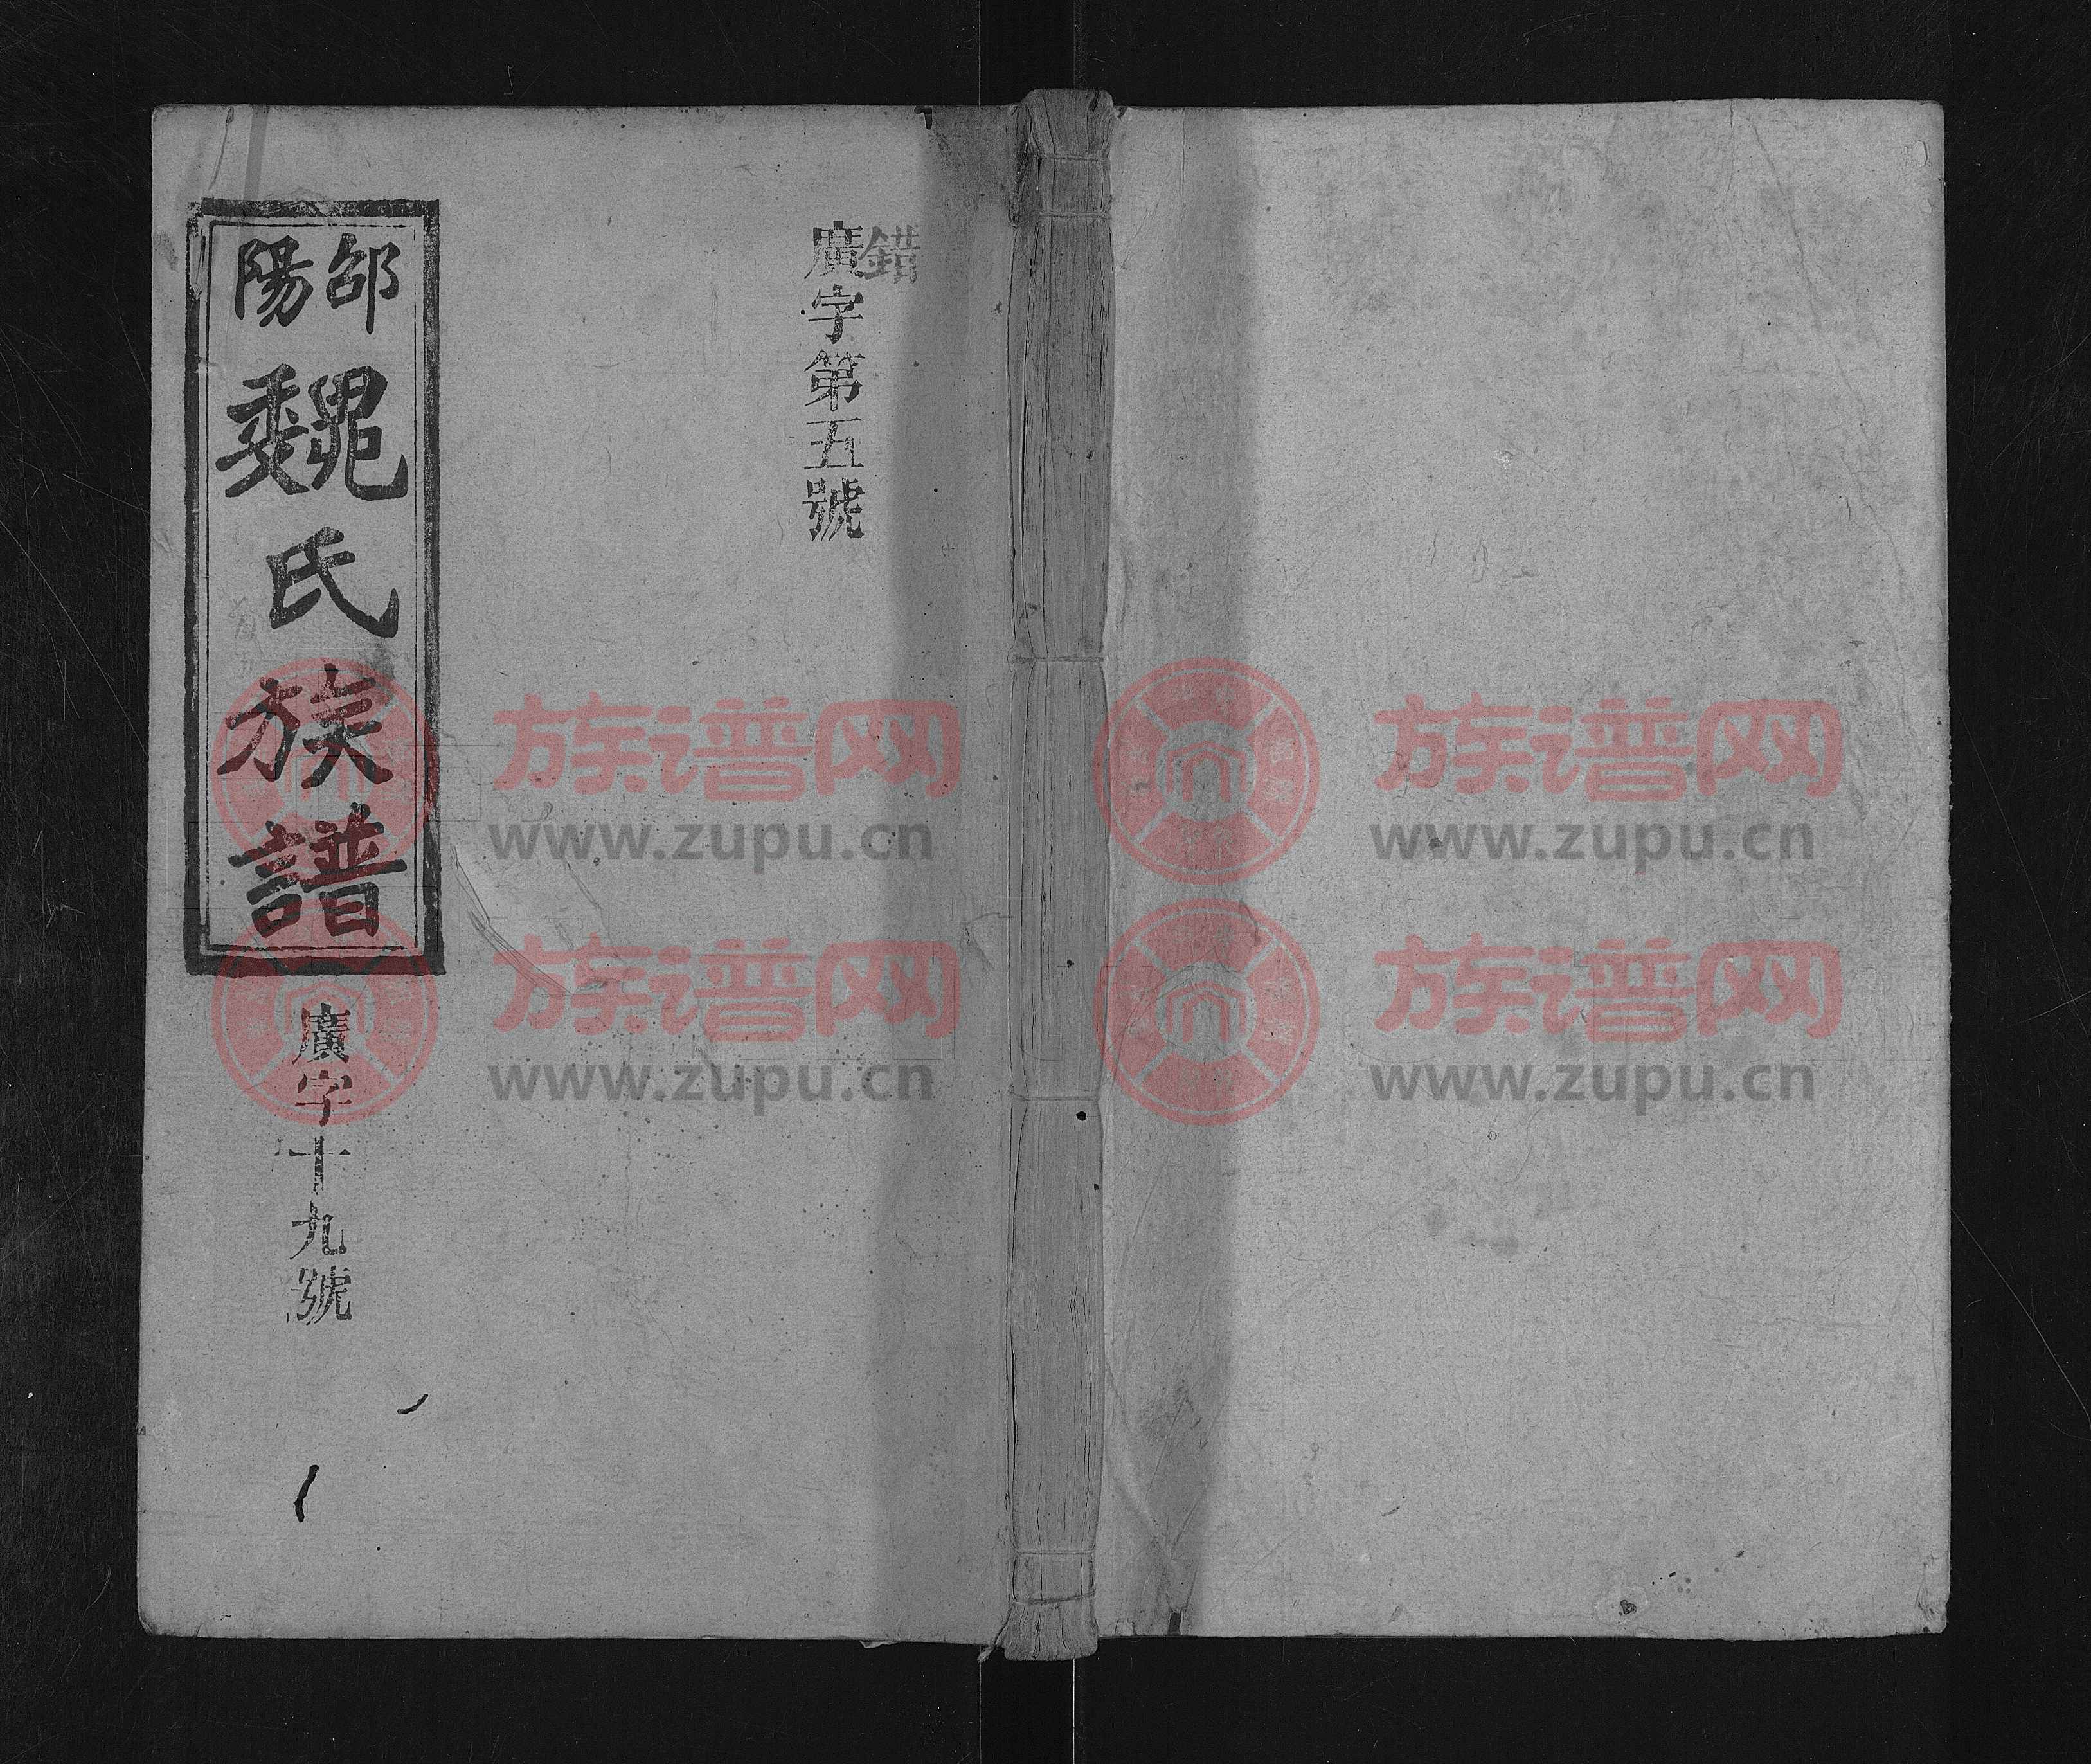 錯
廣字第五號
邵陽
魏氏族譜
廣字十九號
族谱网
www.zupu.cn
族谱网
www.zupu.cn
族谱网
www.zupu.cn
族谱网
www.zupu.cn